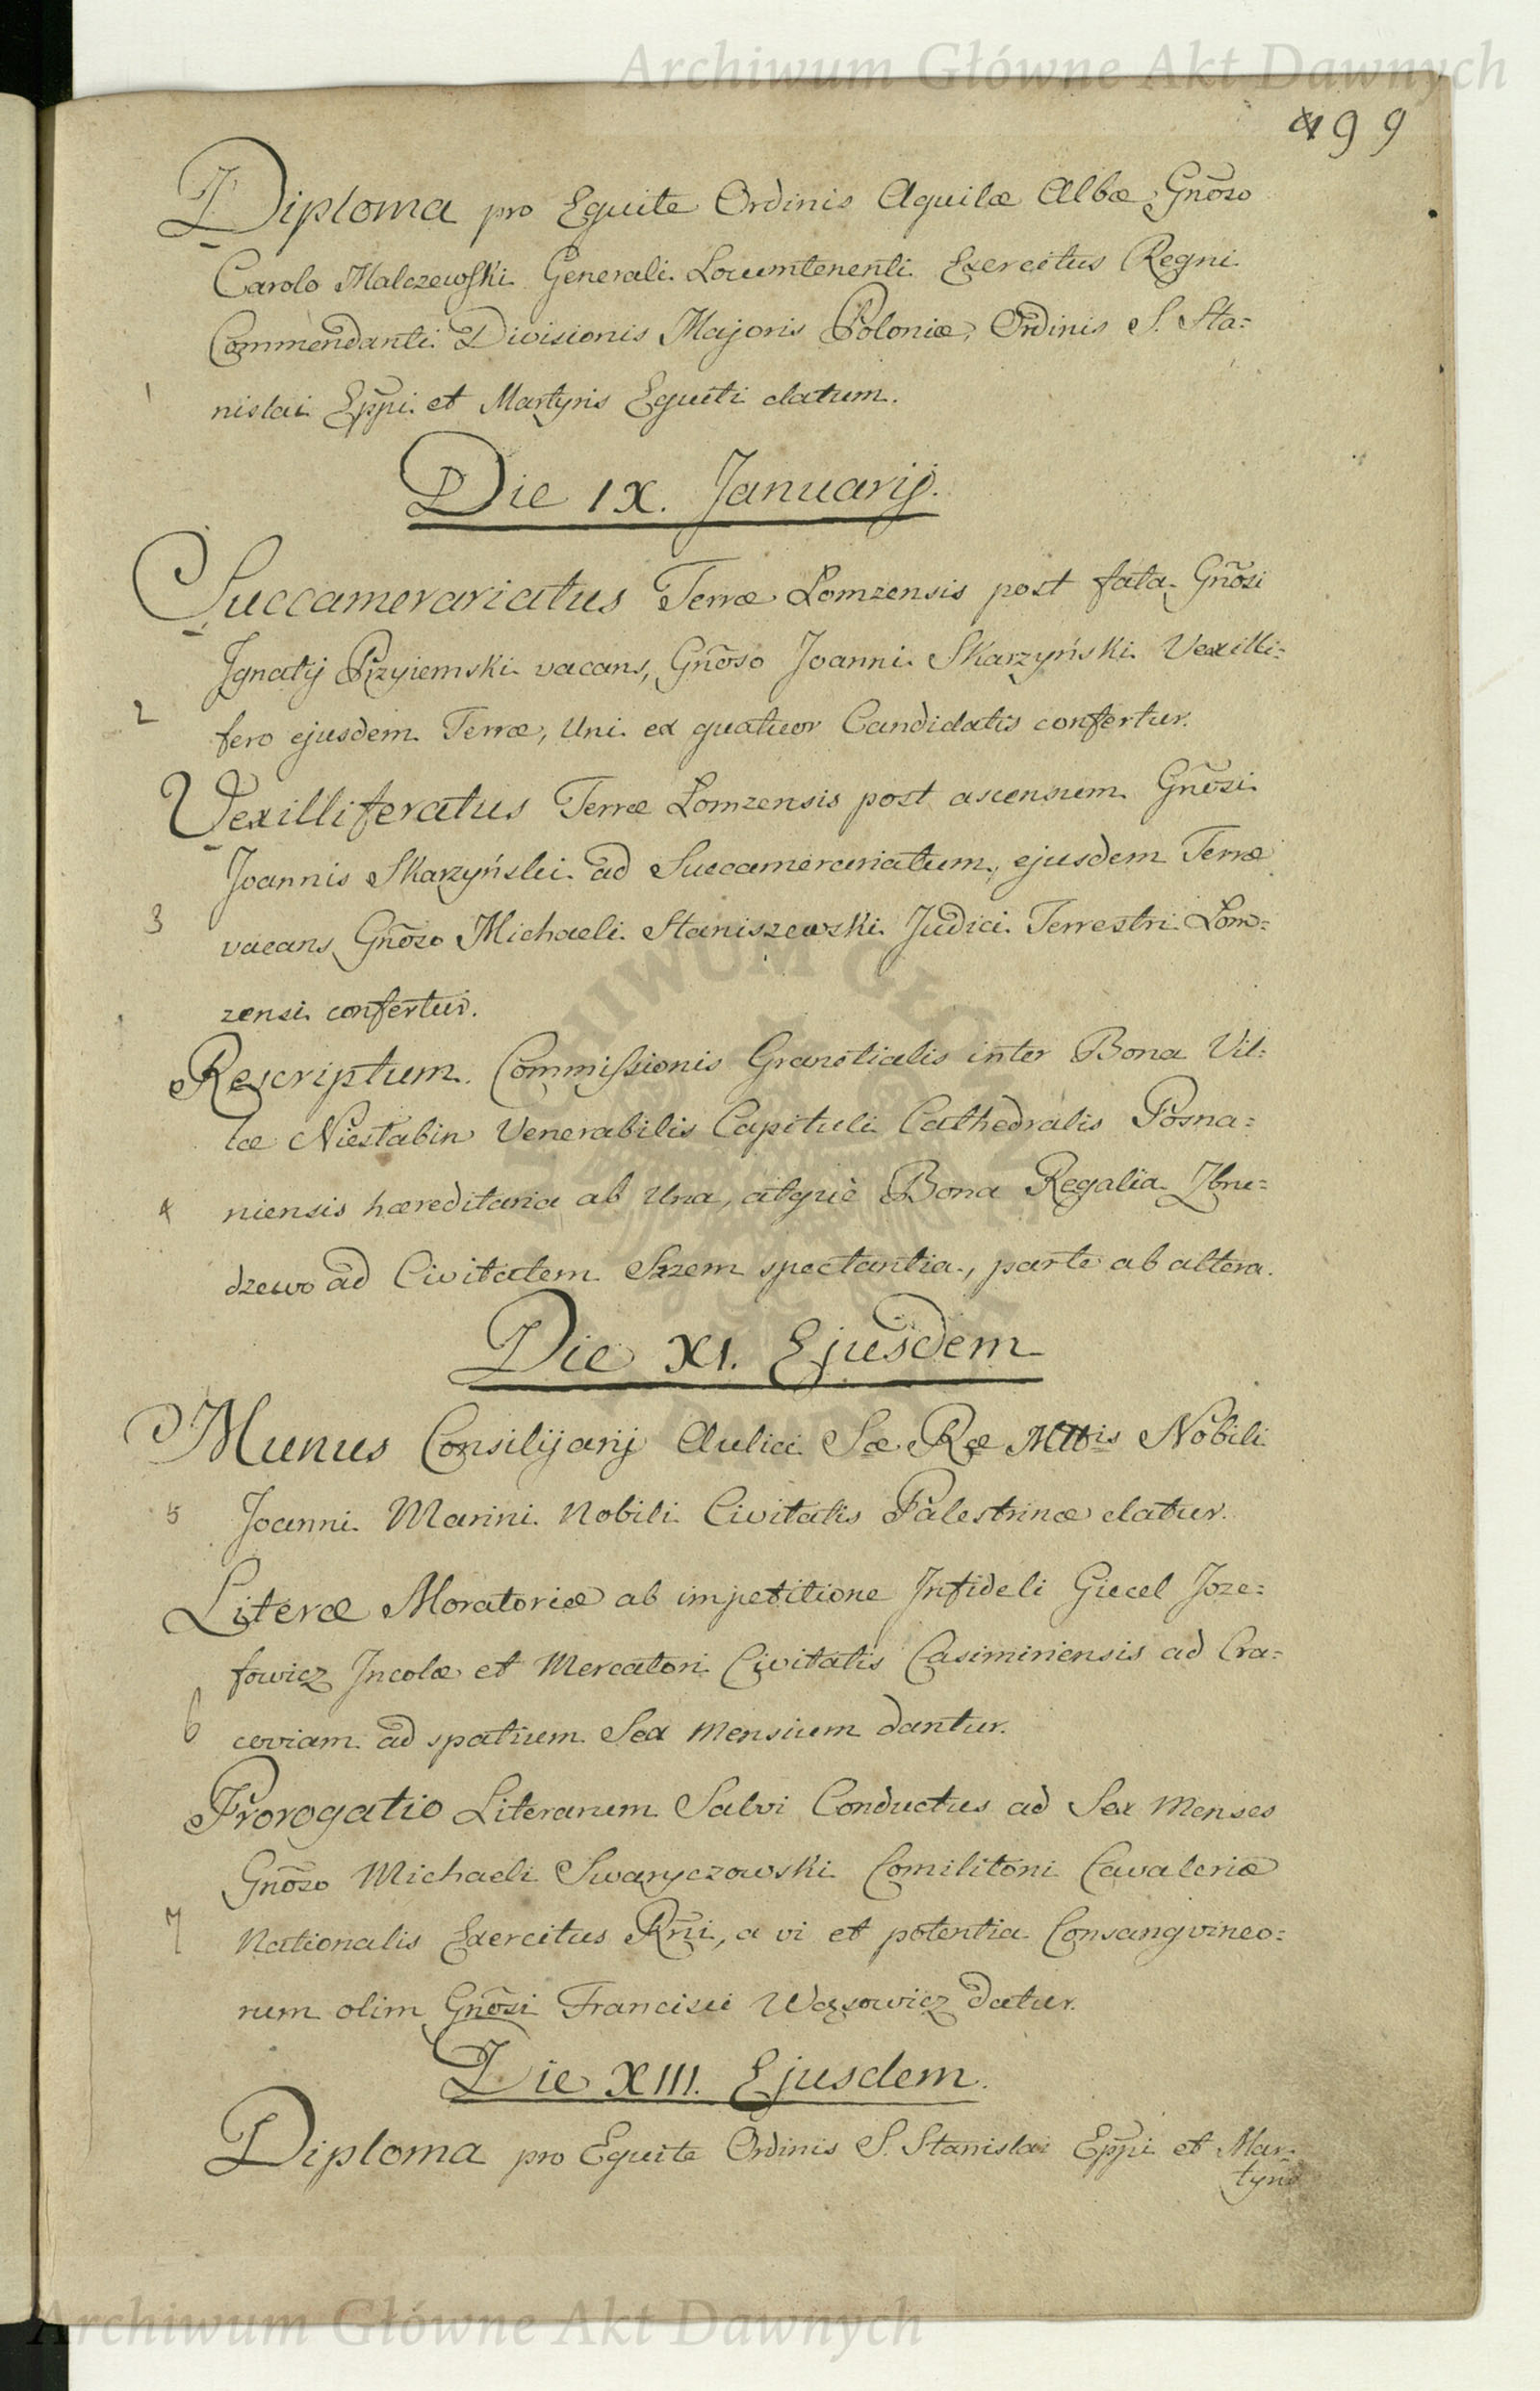 Archiwum Główne Akt Dawnych
199
Diploma pro Equite Ordinis Aquilæ Albæ Gnõso
Carolo Malczewski Generali Locumtenenti Exercitus Regni
Commendanti Divisionis Majoris Poloniæ, Ordinis S. Sta=
1 nislai Epp̃i et Martyris Equiti datum.
Die IX. Januarij.
Succamerariatus Terræ Lomzensis post fata Gnõsi
Ignatij Przyiemski vacans, Gnõso Joanni Skarzyński Vexilli=
2 fero ejusdem Terræ, Uni ex quatuor Candidatis confertur.
Vexilliferatus Terræ Lomzensis post ascensum Gnõsi
Joannis Skarzyński ad Succamerariatum ejusdem Terræ
3 vacans Gnõso Michaeli Staniszewski Judici Terrestri Lom=
zensi confertur.
Rescriptum Commissionis Granitialis inter Bona Vil=
læ Niesłabin Venerabilis Capituli Cathedralis Posna=
4 niensis hæreditaria ab Una, atque Bona Regalia Zbru=
dzewo ad Civitatem Szrem spectantia, parte ab altera.
Die XI. Ejusdem
Munus Consilijarij Aulici Sæ Ræ Mttis Nobili
5 Joanni Marini Nobili Civitatis Palestrinæ datur.
Literæ Moratoriæ ab impetitione Infideli Giecel Joze=
fowicz Incolæ et Mercatori Civitatis Casimiriensis ad Cra=
6 coviam ad spatium Sex Mensium dantur.
Prorogatio Literarum Salvi Conductus ad Sex Menses
Gnõso Michaeli Swaryczowski Comilitoni Cavaleriæ
7 Nationalis Exercitus Rñi, a vi et potentia Consangvineo=
rum olim Gnõsi Francisci Wąsowicz datur.
Die XIII. Ejusdem.
Diploma pro Equite Ordinis S. Stanislai Epp̃i et Mar=
tyris
Archiwum Główne Akt Dawnych